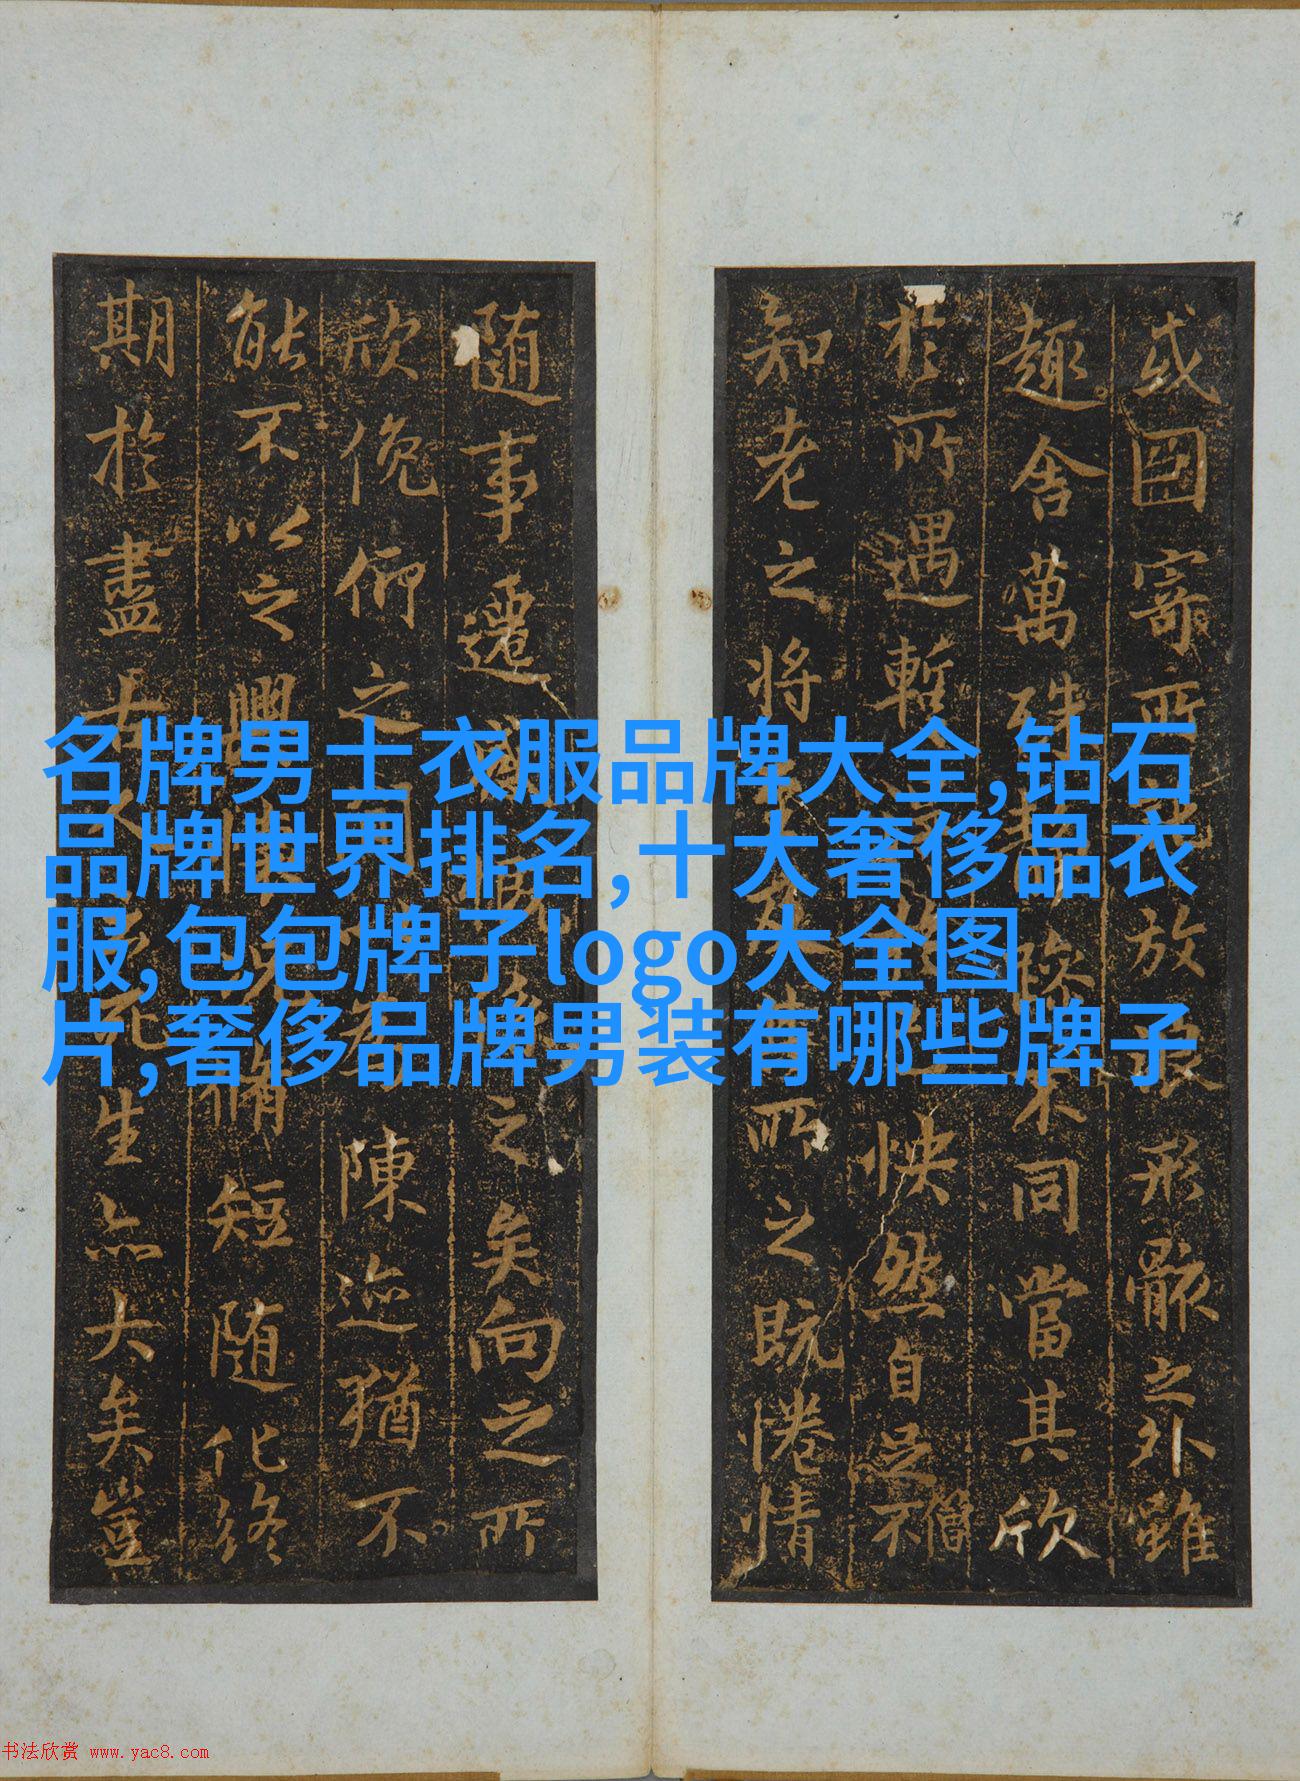 名牌男士衣服品牌大全,钻石
品牌世界排名,十大奢侈品衣
服,包包牌子logo大全图
片,奢侈品牌男装有哪些牌子
或因寄所放浪形骸之外雖
趣舍萬殊靜躁不同當其欣
於所遇暫快然自足不
僧
知老之將所之既惓情
隨事遷感慨係之矣向之所
欣俛仰之間以為陳迹猶不
能不以之興懷況脩短隨化終
期於盡古人云死生亦大矣豈
书法欣赏 www.yac8.com